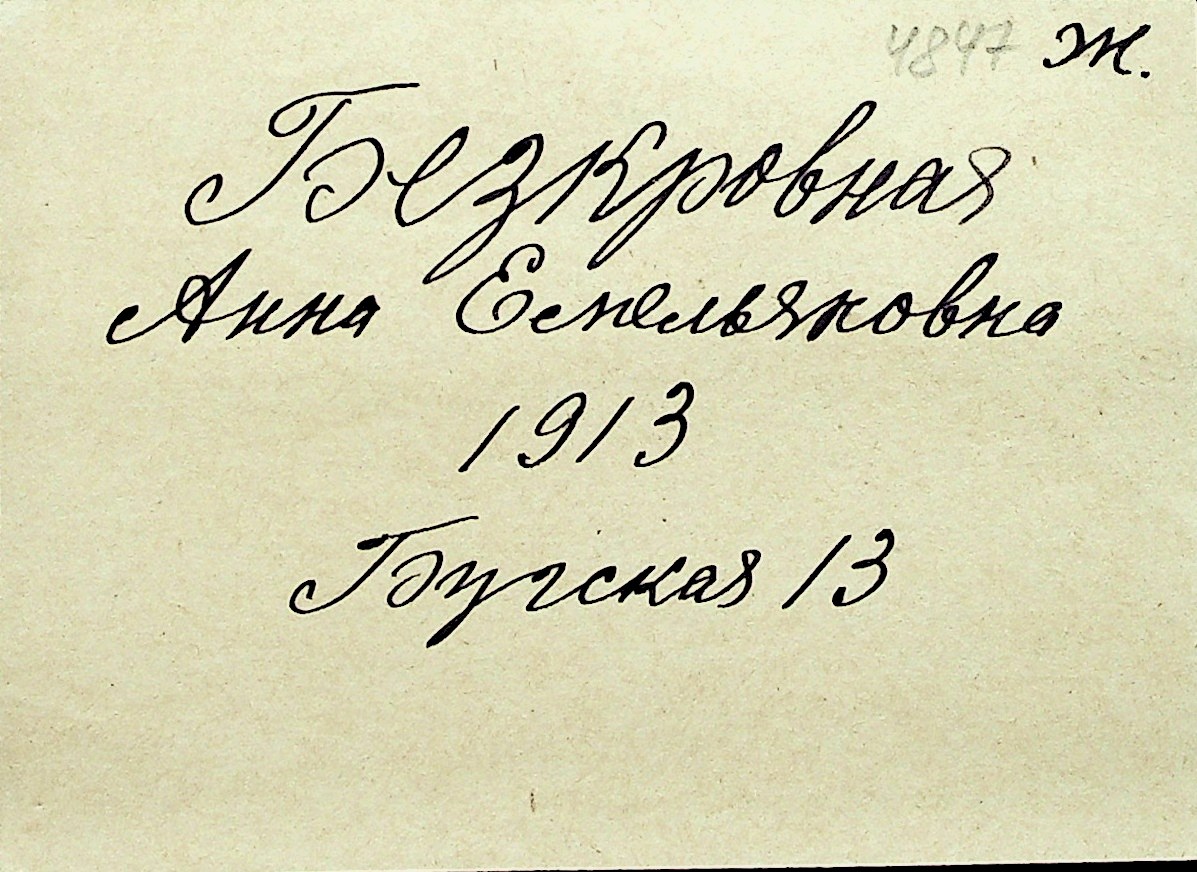 4847 ж.
Безкровная
Анна Емельяновна
1913
Бугская 13